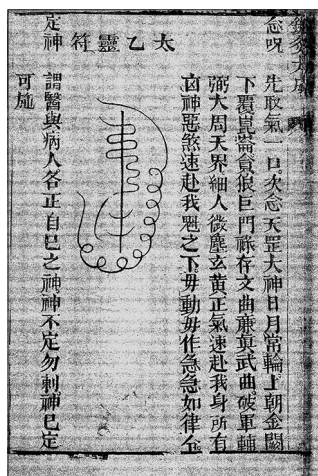 念呪
先取氣一口次念天罡大神日月常輪上朝金闕
下覆崑崙貪狼巨門祿存文曲廉貞武曲破軍輔
弼大周天界細人微塵玄黃正氣速赴我身所有
凶神惡煞速赴我魁之下毋動毋作急急如律令
太乙靈符
定神
謂醫與病人各正自己之神神不定勿刺神已定
可施